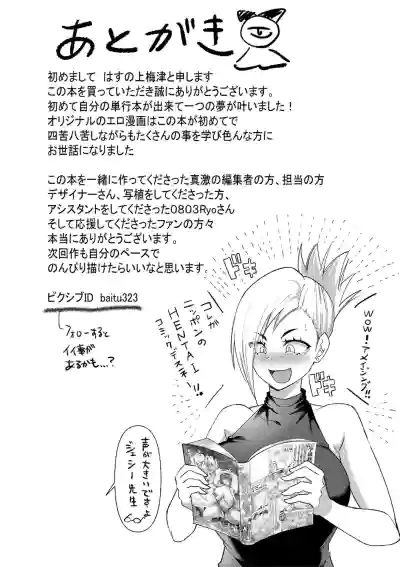 あとがき
初めまして はすの上梅津と申します
この本を買っていただき誠にありがとうございます。
初めて自分の単行本が出来て一つの夢が叶いました！
オリジナルのエロ漫画はこの本が初めてで
四苦八苦しながらもたくさんの事を学び色んな方に
お世話になりました
この本を一緒に作ってくださった真激の編集者の方、担当の方
デザイナーさん、写植をしてくださった方、
アシスタントをしてくださった0803Ryoさん
そして応援してくださったファンの方々
本当にありがとうございます。
次回作も自分のペースで
のんびり描けたらいいなと思います.
ピクシブID baitu323
フォローすると
イイ事が
あるかも…?
ドキ
WOW!アメイジング!!
コレが
ニッポンの
HENTAI
コミックデスネー!!
ドキ
声が大きいですよ
ジェシー先生